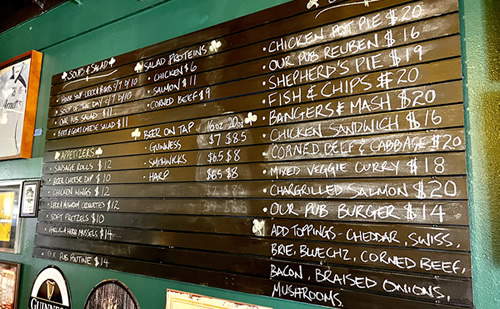 SOUPS & SALAD
SOUP OF THE DAY 5/7 8/10
OUR PUB SALAD $11
BEET & GOAT CHEESE SALAD $11
APPETIZERS
SAUSAGE ROLLS $12
BEER CHEESE DIP $10
CHICKEN WINGS $12
SOFT PRETZELS $10
MUSSELS $14
OUR PUB POUTINE $14
GUINNESS
SALAD PROTEINS
CHICKEN $6
SALMON $11
CORNED BEEF $9
BEER ON TAP 16oz 20oz
GUINNESS $7 $8.5
SMITHWICKS $6.5 $8
HARP $6.5 $8
CHICKEN POT PIE $20
OUR PUB REUBEN $16
SHEPHERD'S PIE $19
FISH & CHIPS $20
BANGERS & MASH $20
CHICKEN SANDWICH $16
CORNED BEEF & CABBAGE $20
MIXED VEGGIE CURRY $18
CHARGRILLED SALMON $20
OUR PUB BURGER $14
ADD TOPPINGS - CHEDDAR, SWISS,
BRIE, BLUE CHZ, CORNED BEEF,
BACON, BRAISED ONIONS,
MUSHROOMS.